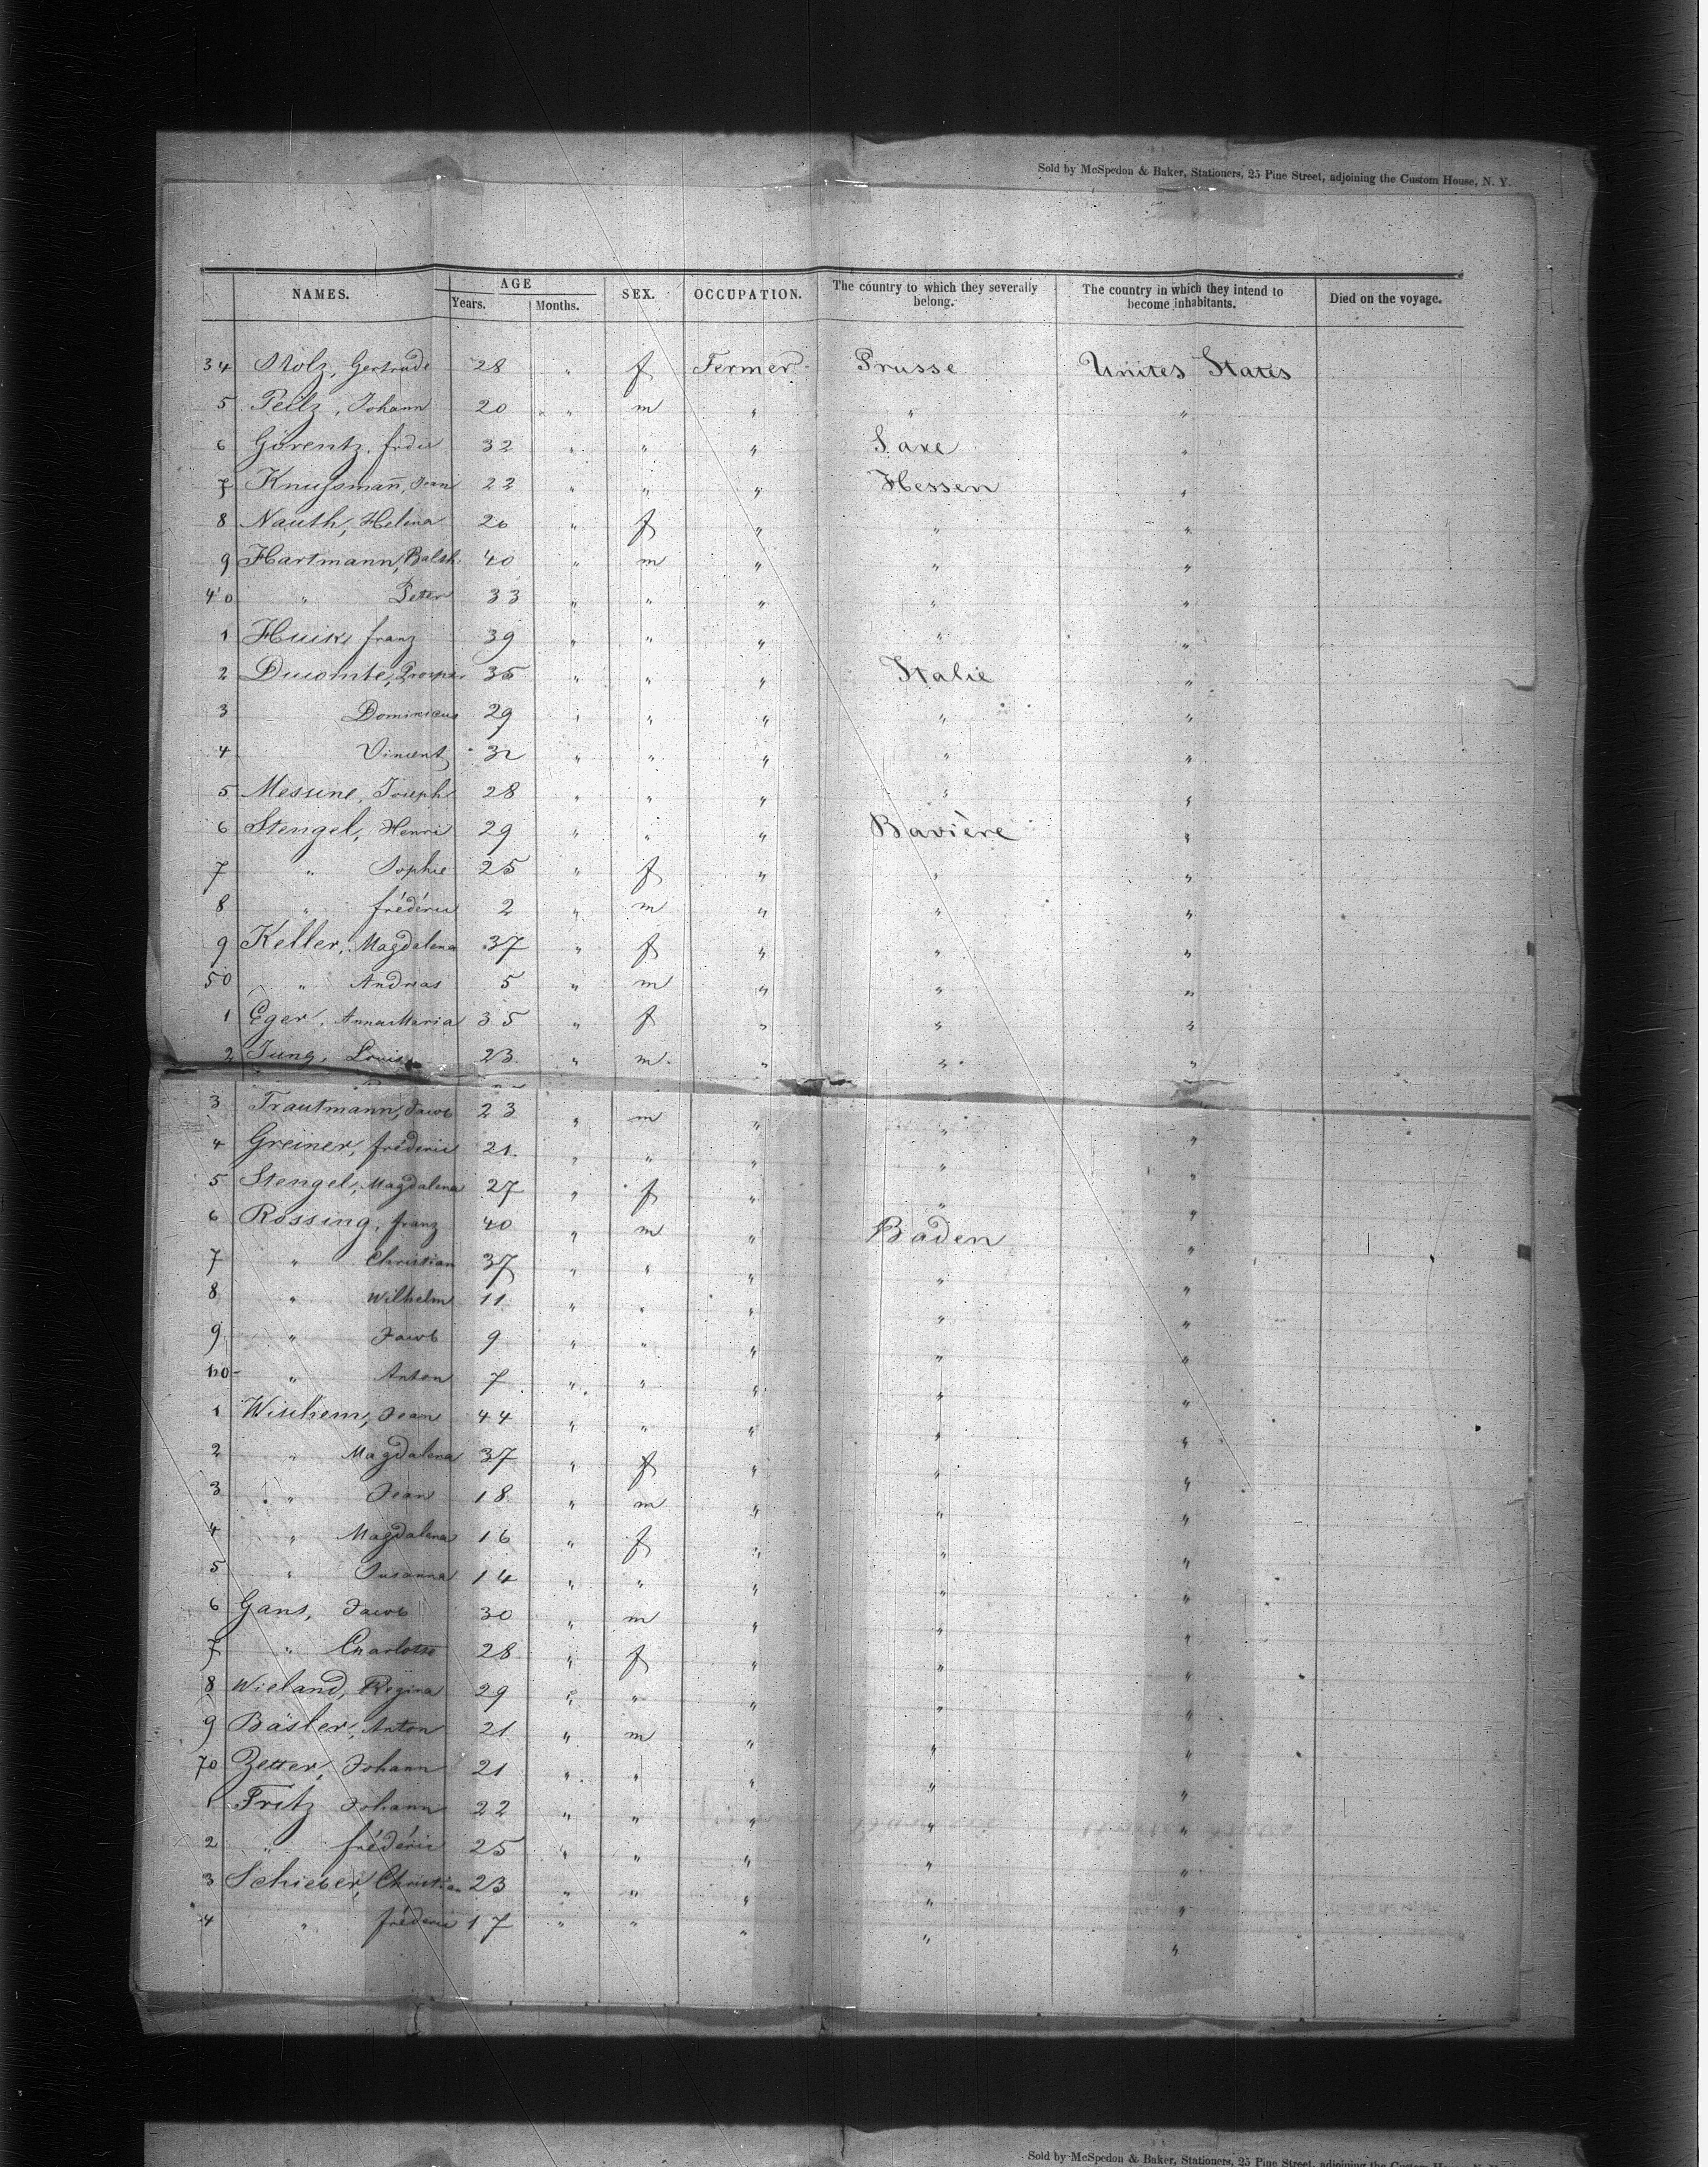 Sold by McSpedon & Baker, Stationers, 25 Pine Street, adjoining the Custom House, N. Y.
NAMES. AGE Years. Months. SEX. OCCUPATION. The country to which they severally belong. The country in which they intend to become inhabitants. Died on the voyage.
34 Stolz, Gertrude 28 " f Fermer Prusse Unites States
5 Peilz, Johann 20 " m " " "
6 Görentz, 32 " " " Saxe "
7 Knussmann, Jean 22 " " " Hessen "
8 Nauth, Helena 26 " f " " "
9 Hartmann, Balth. 40 " m " " "
40 " Peter 33 " " " " "
1 franz 39 " " " " "
2 35 " " " Italie "
3 Dominicus 29 " " " " "
4 Vincent 32 " " " " "
5 Messine, Joseph 28 " " " " "
6 Stengel, Henri 29 " " " Bavière "
7 " Sophie 25 " f " " "
8 " frédéric 2 " m " " "
9 Keller, Magdalena 37 " f " " "
50 " Andreas 5 " m " " "
1 Eger, Anna Maria 35 " f " " "
2 Jung, Louis 23 " m " " "
3 Trautmann, Jacob 23 " m " " "
4 Greiner, frédéric 21 " " " " "
5 Stengel, Magdalena 27 " f " " "
6 Rossing, franz 40 " m " Baden "
7 " Christian 37 " " " " "
8 " Wilhelm 11 " " " " "
9 " Jacob 9 " " " " "
60 " Anton 7 " " " " "
1 Jean 44 " " " " "
2 " Magdalena 37 " f " " "
3 " Jean 18 " m " " "
4 " Magdalena 16 " f " " "
5 " Susanna 14 " " " " "
6 Gans, Jacob 30 " m " " "
7 " Charlotte 28 " f " " "
8 Wieland, Regina 29 " " " " "
9 Bäsler, Anton 21 " m " " "
70 Zetter, Johann 21 " " " " "
1 Fritz Johann 22 " " " " "
2 " frédéric 25 " " " " "
3 Schieber, Christian 23 " " " " "
4 " frédéric 17 " " " " "
Sold by McSpedon & Baker, Stationers, 25 Pine Street, adjoining the Custom House, N. Y.